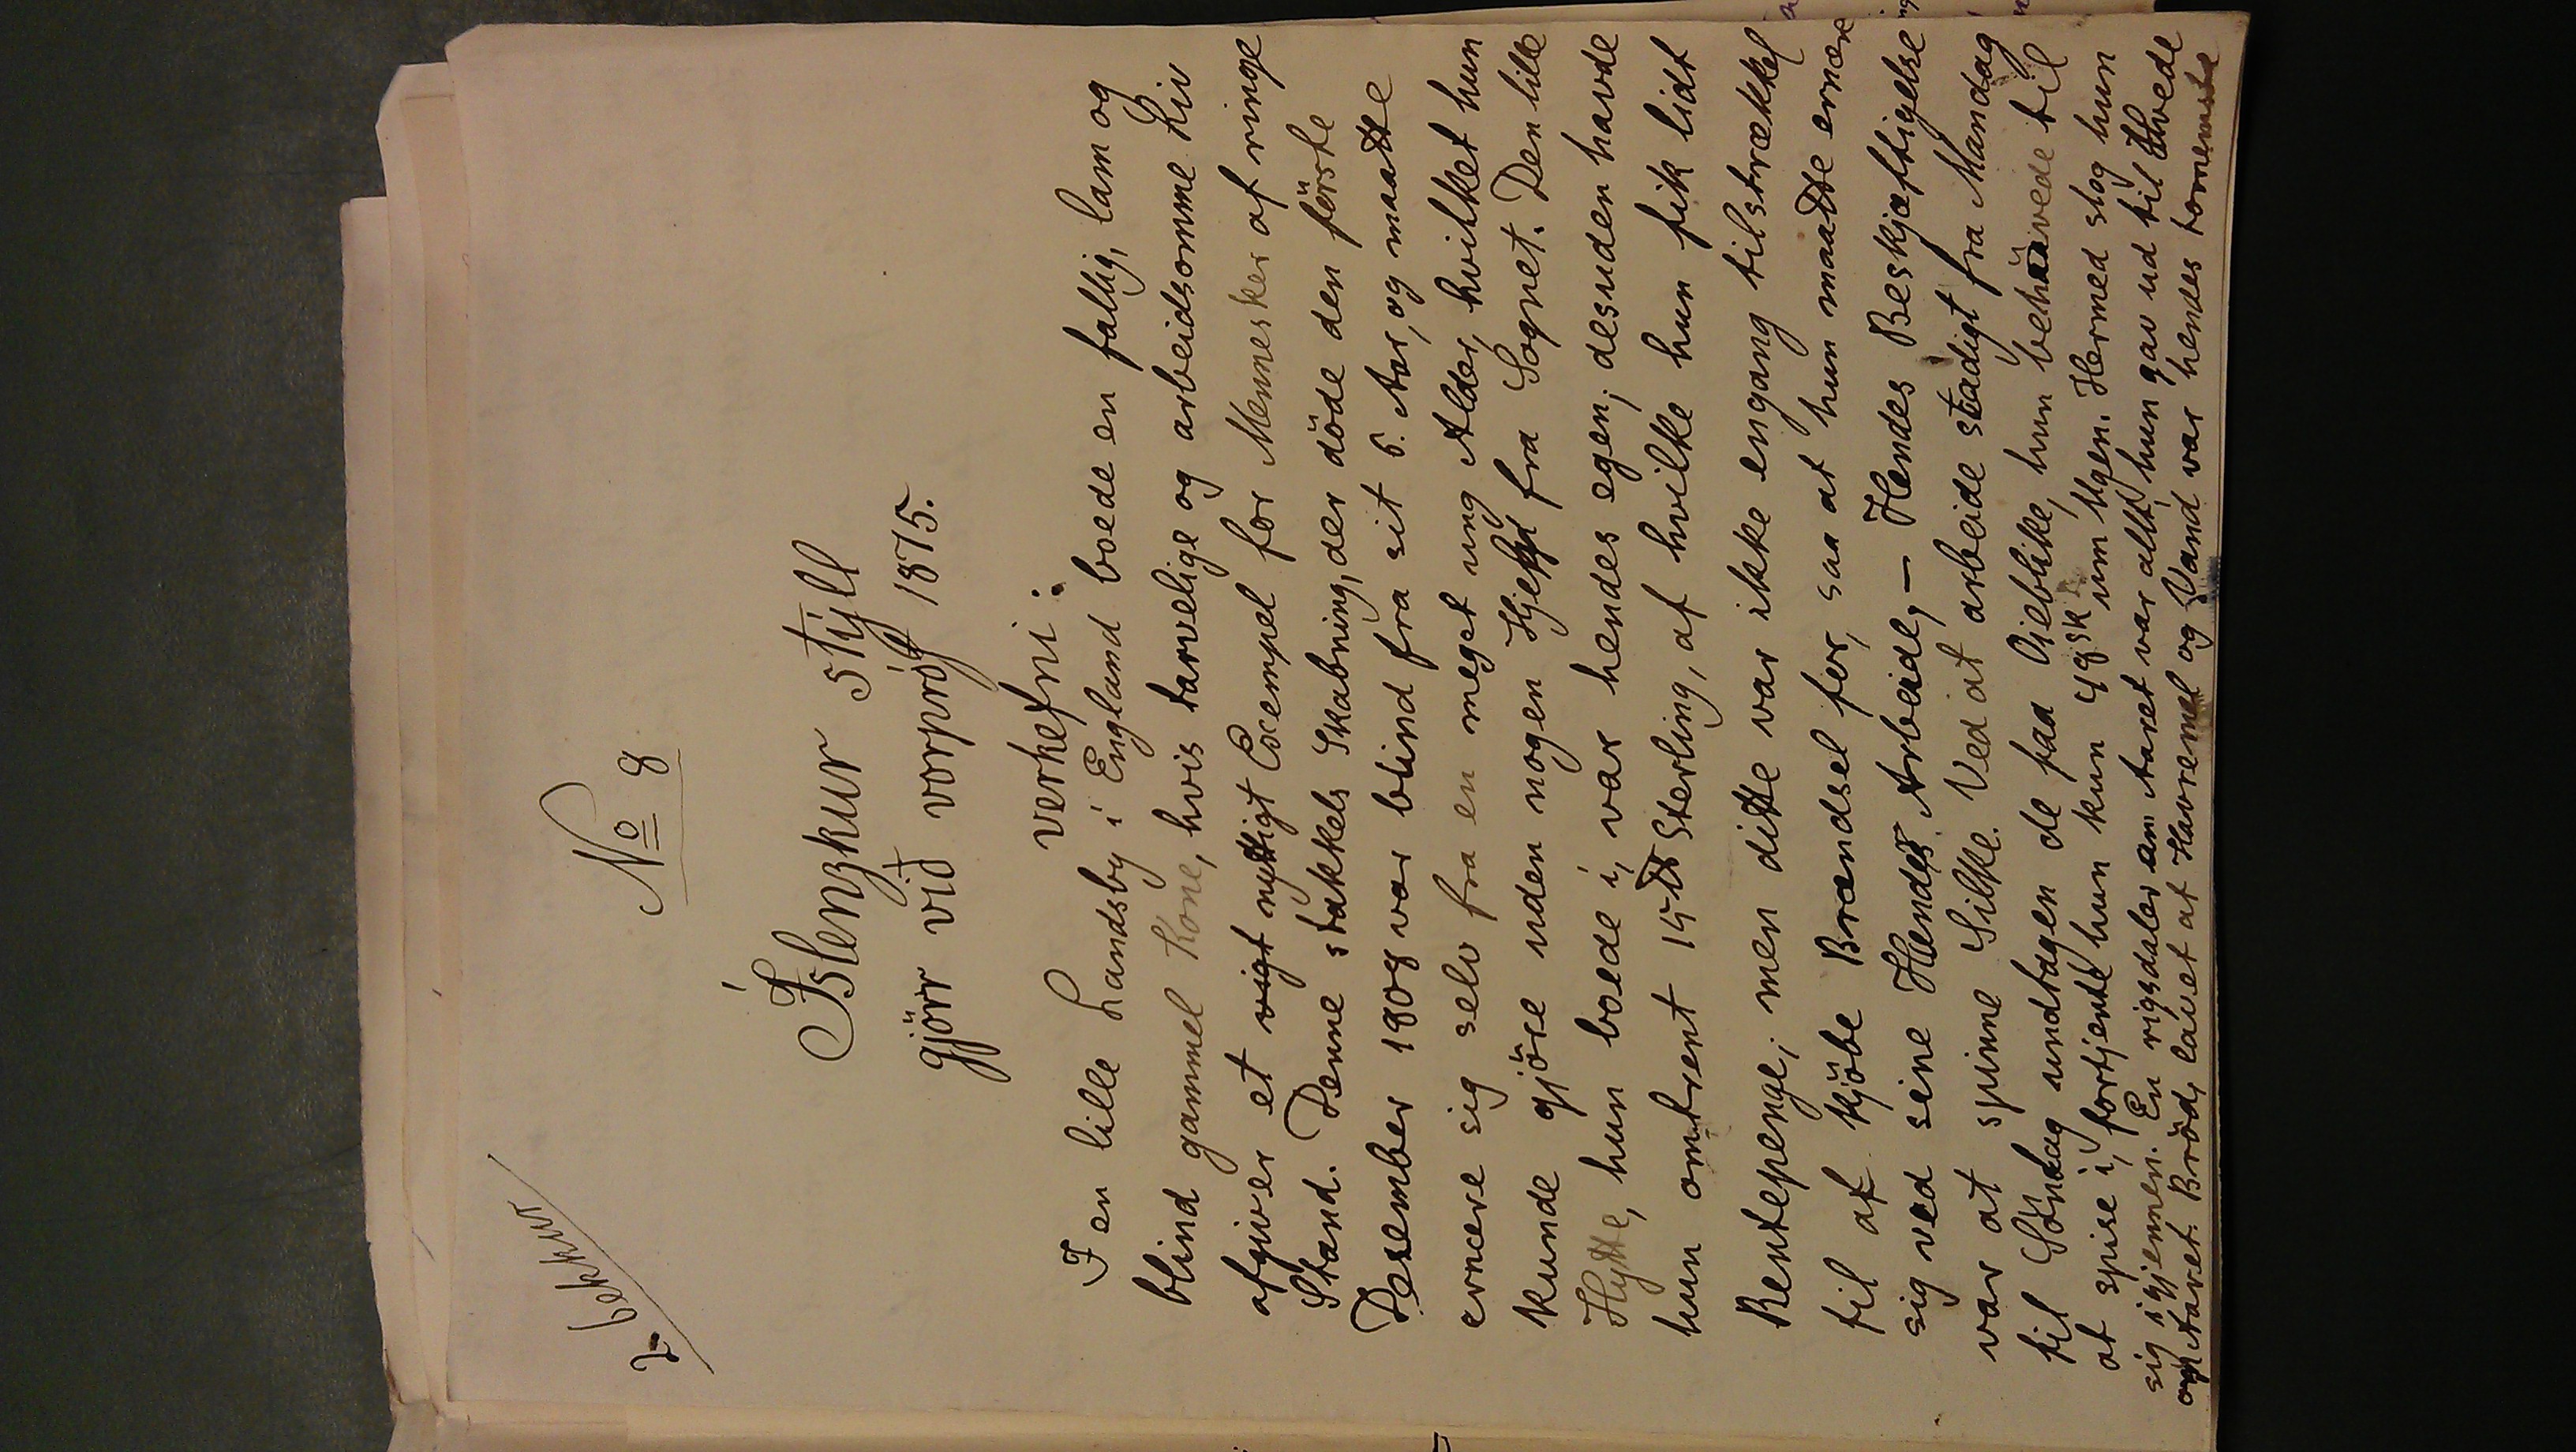 2. bekkur
No 8
Íslenzkur stýll
gjörr við vorpróf 1875.
verkefni:
I en lille Landsby i England boede en fattig, lam og
blind gammel Kone, hvis tarvelige og arbeidsomme Liv
afgiver et vigt nyttigt Exempel for Mennesker af ringe
Stand. Denne stakkels Skabning, der döde den förste
Desember 1808 var blind fra sit 5. Aar, og maatte
ernære sig selv fra en meget ung Alder, hvilket hun
kunde gjöre uden nogen Hjelp fra Sognet. Den lille
Hytte, hun boede i, var hendes egen; desuden havde
hun omtrent 15 Sterling, af hvilke hun fik lidt
Rentepenge; men dette var ikke engang tilstrækkel
til at kjöbe Brændsel for, saa at hun maatte ernære
sig ved sine Hænders Arbeide, — Hendes Beskjæftigelse
var at spinne Silke. Ved at arbeide stadigt fra Mandag
til Söndag undtagen de faa Öieblikke, hun behövede til
at spise i, fortjente hun kun 48 sk um Ugen. Hermed slog hun
sig igjennem. En rigsdaler om Aaret var alt, hun gav ud til Hvede
Aaret. Bröd, lavet at Havremel og Vand var hendes fornemste